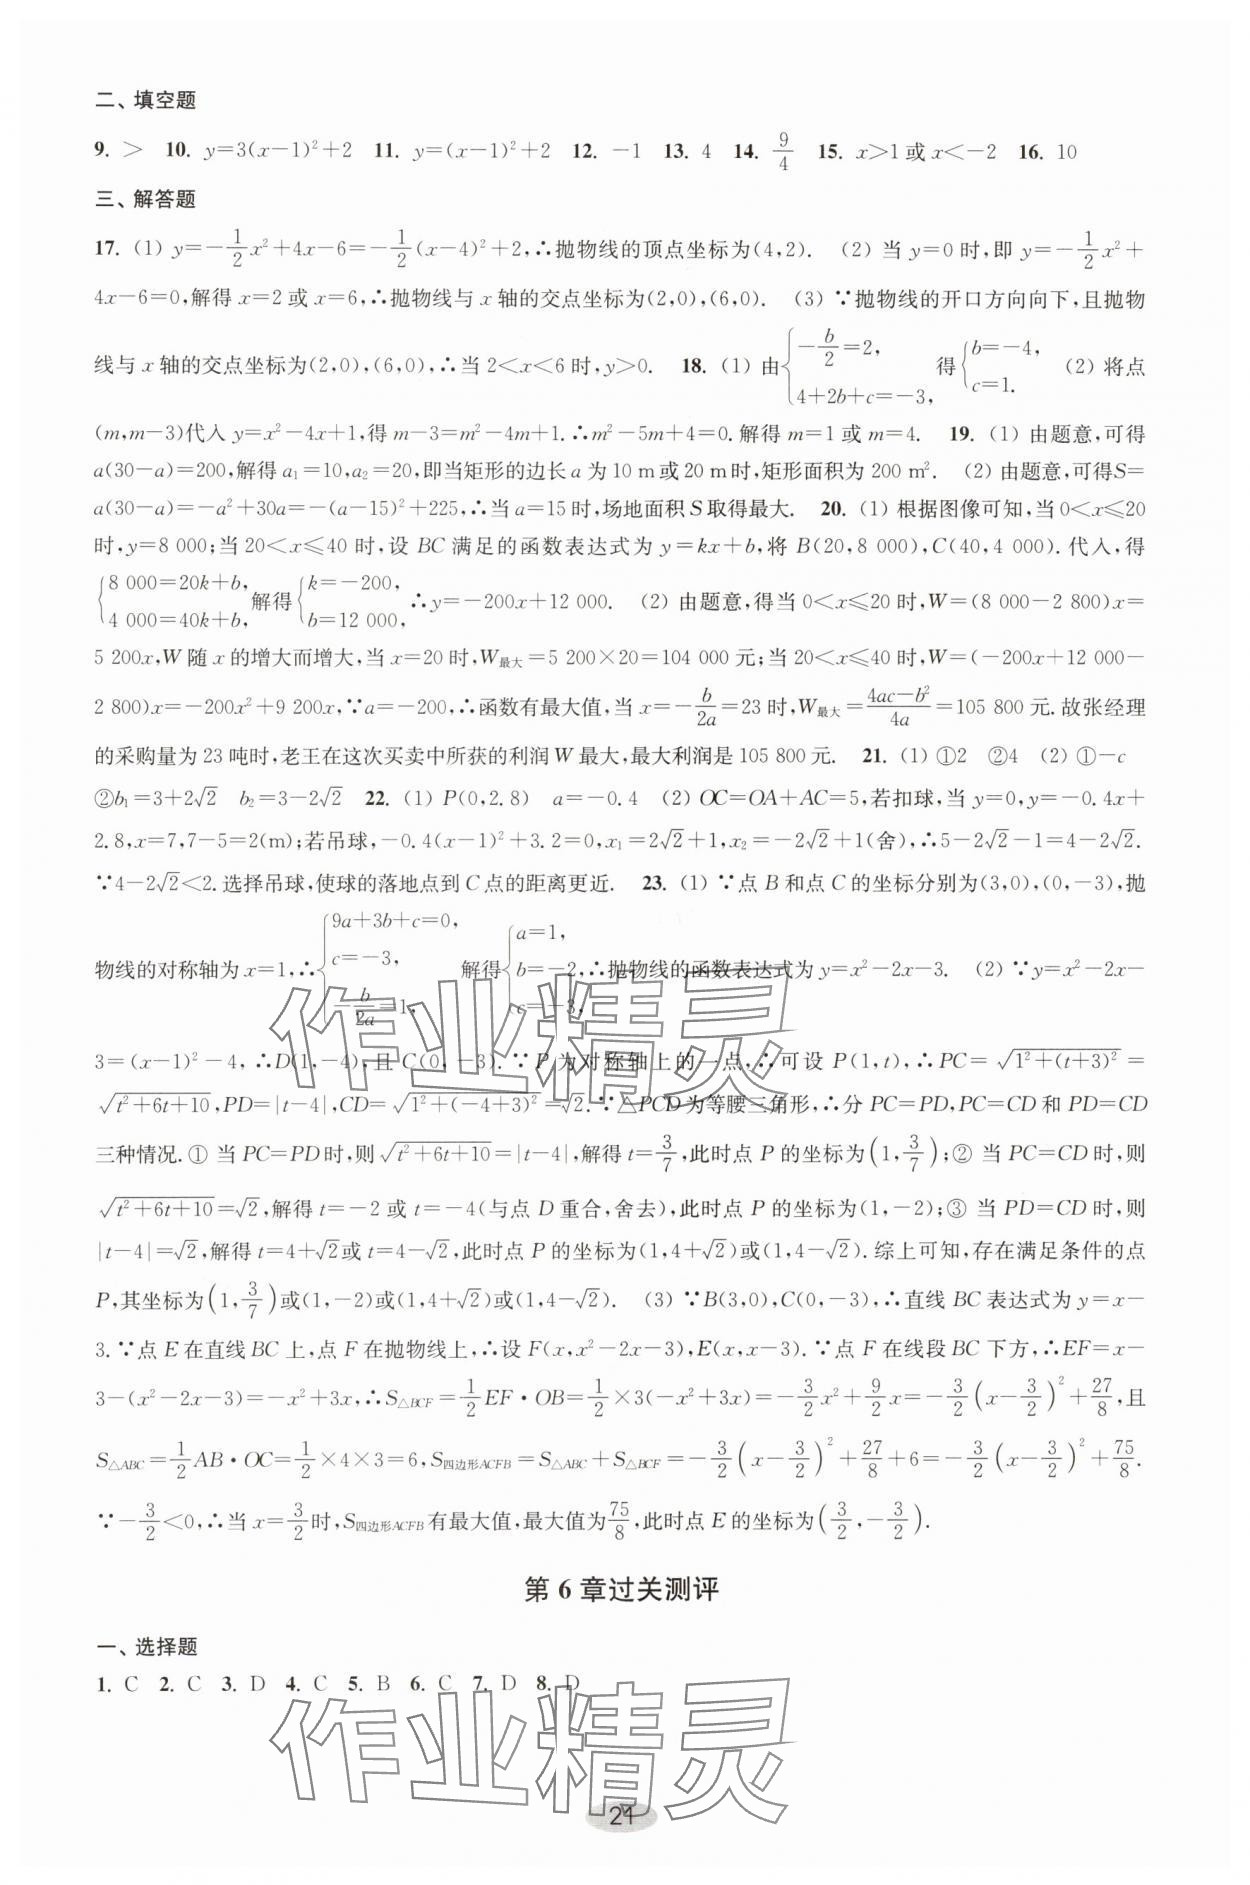 二、填空题
9. ＞ 10. y=3(x-1)²+2 11. y=(x-1)²+2 12. -1 13. 4 14. 9/4 15. x>1或x<-2 16. 10
三、解答题
17. (1) y=-1/2x²+4x-6=-1/2(x-4)²+2,∴抛物线的顶点坐标为(4,2). (2) 当y=0时,即y=-1/2x²+
4x-6=0,解得x=2或x=6,∴抛物线与x轴的交点坐标为(2,0),(6,0). (3) ∵抛物线的开口方向向下,且抛物
线与x轴的交点坐标为(2,0),(6,0),∴当2<x<6时,y>0. 18. (1) 由{-b/2=2, 4+2b+c=-3, 得{b=-4, c=1. (2) 将点
(m,m-3)代入y=x²-4x+1,得m-3=m²-4m+1.∴m²-5m+4=0.解得m=1或m=4. 19. (1) 由题意,可得
a(30-a)=200,解得a₁=10,a₂=20,即当矩形的边长a为10 m或20 m时,矩形面积为200 m². (2) 由题意,可得S=
a(30-a)=-a²+30a=-(a-15)²+225,∴当a=15时,场地面积S取得最大. 20. (1) 根据图像可知,当0<x≤20
时,y=8 000;当20<x≤40时,设BC满足的函数表达式为y=kx+b,将B(20,8 000),C(40,4 000).代入,得
{8 000=20k+b, 4 000=40k+b, 解得{k=-200, b=12 000, ∴y=-200x+12 000. (2) 由题意,得当0<x≤20时,W=(8 000-2 800)x=
5 200x,W随x的增大而增大,当x=20时,W最大=5 200×20=104 000元;当20<x≤40时,W=(-200x+12 000-
2 800)x=-200x²+9 200x,∵a=-200,∴函数有最大值,当x=-b/2a=23时,W最大=(4ac-b²)/4a=105 800元.故张经理
的采购量为23吨时,老王在这次买卖中所获的利润W最大,最大利润是105 800元. 21. (1) ①2 ②4 (2) ①-c
②b₁=3+2√2 b₂=3-2√2 22. (1) P(0,2.8) a=-0.4 (2) OC=OA+AC=5,若扣球,当y=0,y=-0.4x+
2.8,x=7,7-5=2(m);若吊球,-0.4(x-1)²+3.2=0,x₁=2√2+1,x₂=-2√2+1(舍),∴5-2√2-1=4-2√2.
∵4-2√2<2.选择吊球,使球的落地点到C点的距离更近. 23. (1) ∵点B和点C的坐标分别为(3,0),(0,-3),抛
物线的对称轴为x=1,∴{9a+3b+c=0, c=-3, -b/2a=1, 解得{a=1, b=-2, c=-3, ∴抛物线的函数表达式为y=x²-2x-3. (2) ∵y=x²-2x-
3=(x-1)²-4,∴D(1,-4),且C(0,-3).∵P为对称轴上的一点,∴可设P(1,t),∴PC=√(1²+(t+3)²)=
√(t²+6t+10),PD=|t-4|,CD=√(1²+(-4+3)²)=√2.∵△PCD为等腰三角形,∴分PC=PD,PC=CD和PD=CD
三种情况.① 当PC=PD时,则√(t²+6t+10)=|t-4|,解得t=3/7,此时点P的坐标为(1,3/7);② 当PC=CD时,则
√(t²+6t+10)=√2,解得t=-2或t=-4(与点D重合,舍去),此时点P的坐标为(1,-2);③ 当PD=CD时,则
|t-4|=√2,解得t=4+√2或t=4-√2,此时点P的坐标为(1,4+√2)或(1,4-√2).综上可知,存在满足条件的点
P,其坐标为(1,3/7)或(1,-2)或(1,4+√2)或(1,4-√2). (3) ∵B(3,0),C(0,-3),∴直线BC表达式为y=x-
3.∵点E在直线BC上,点F在抛物线上,∴设F(x,x²-2x-3),E(x,x-3).∵点F在线段BC下方,∴EF=x-
3-(x²-2x-3)=-x²+3x,∴S△BCF=1/2EF·OB=1/2×3(-x²+3x)=-3/2x²+9/2x=-3/2(x-3/2)²+27/8,且
S△ABC=1/2AB·OC=1/2×4×3=6,S四边形ACFB=S△ABC+S△BCF=-3/2(x-3/2)²+27/8+6=-3/2(x-3/2)²+75/8.
∵-3/2<0,∴当x=3/2时,S四边形ACFB有最大值,最大值为75/8,此时点E的坐标为(3/2,-3/2).
第6章过关测评
一、选择题
1. C 2. C 3. D 4. C 5. B 6. C 7. D 8. D
21
作业精灵
作业精灵